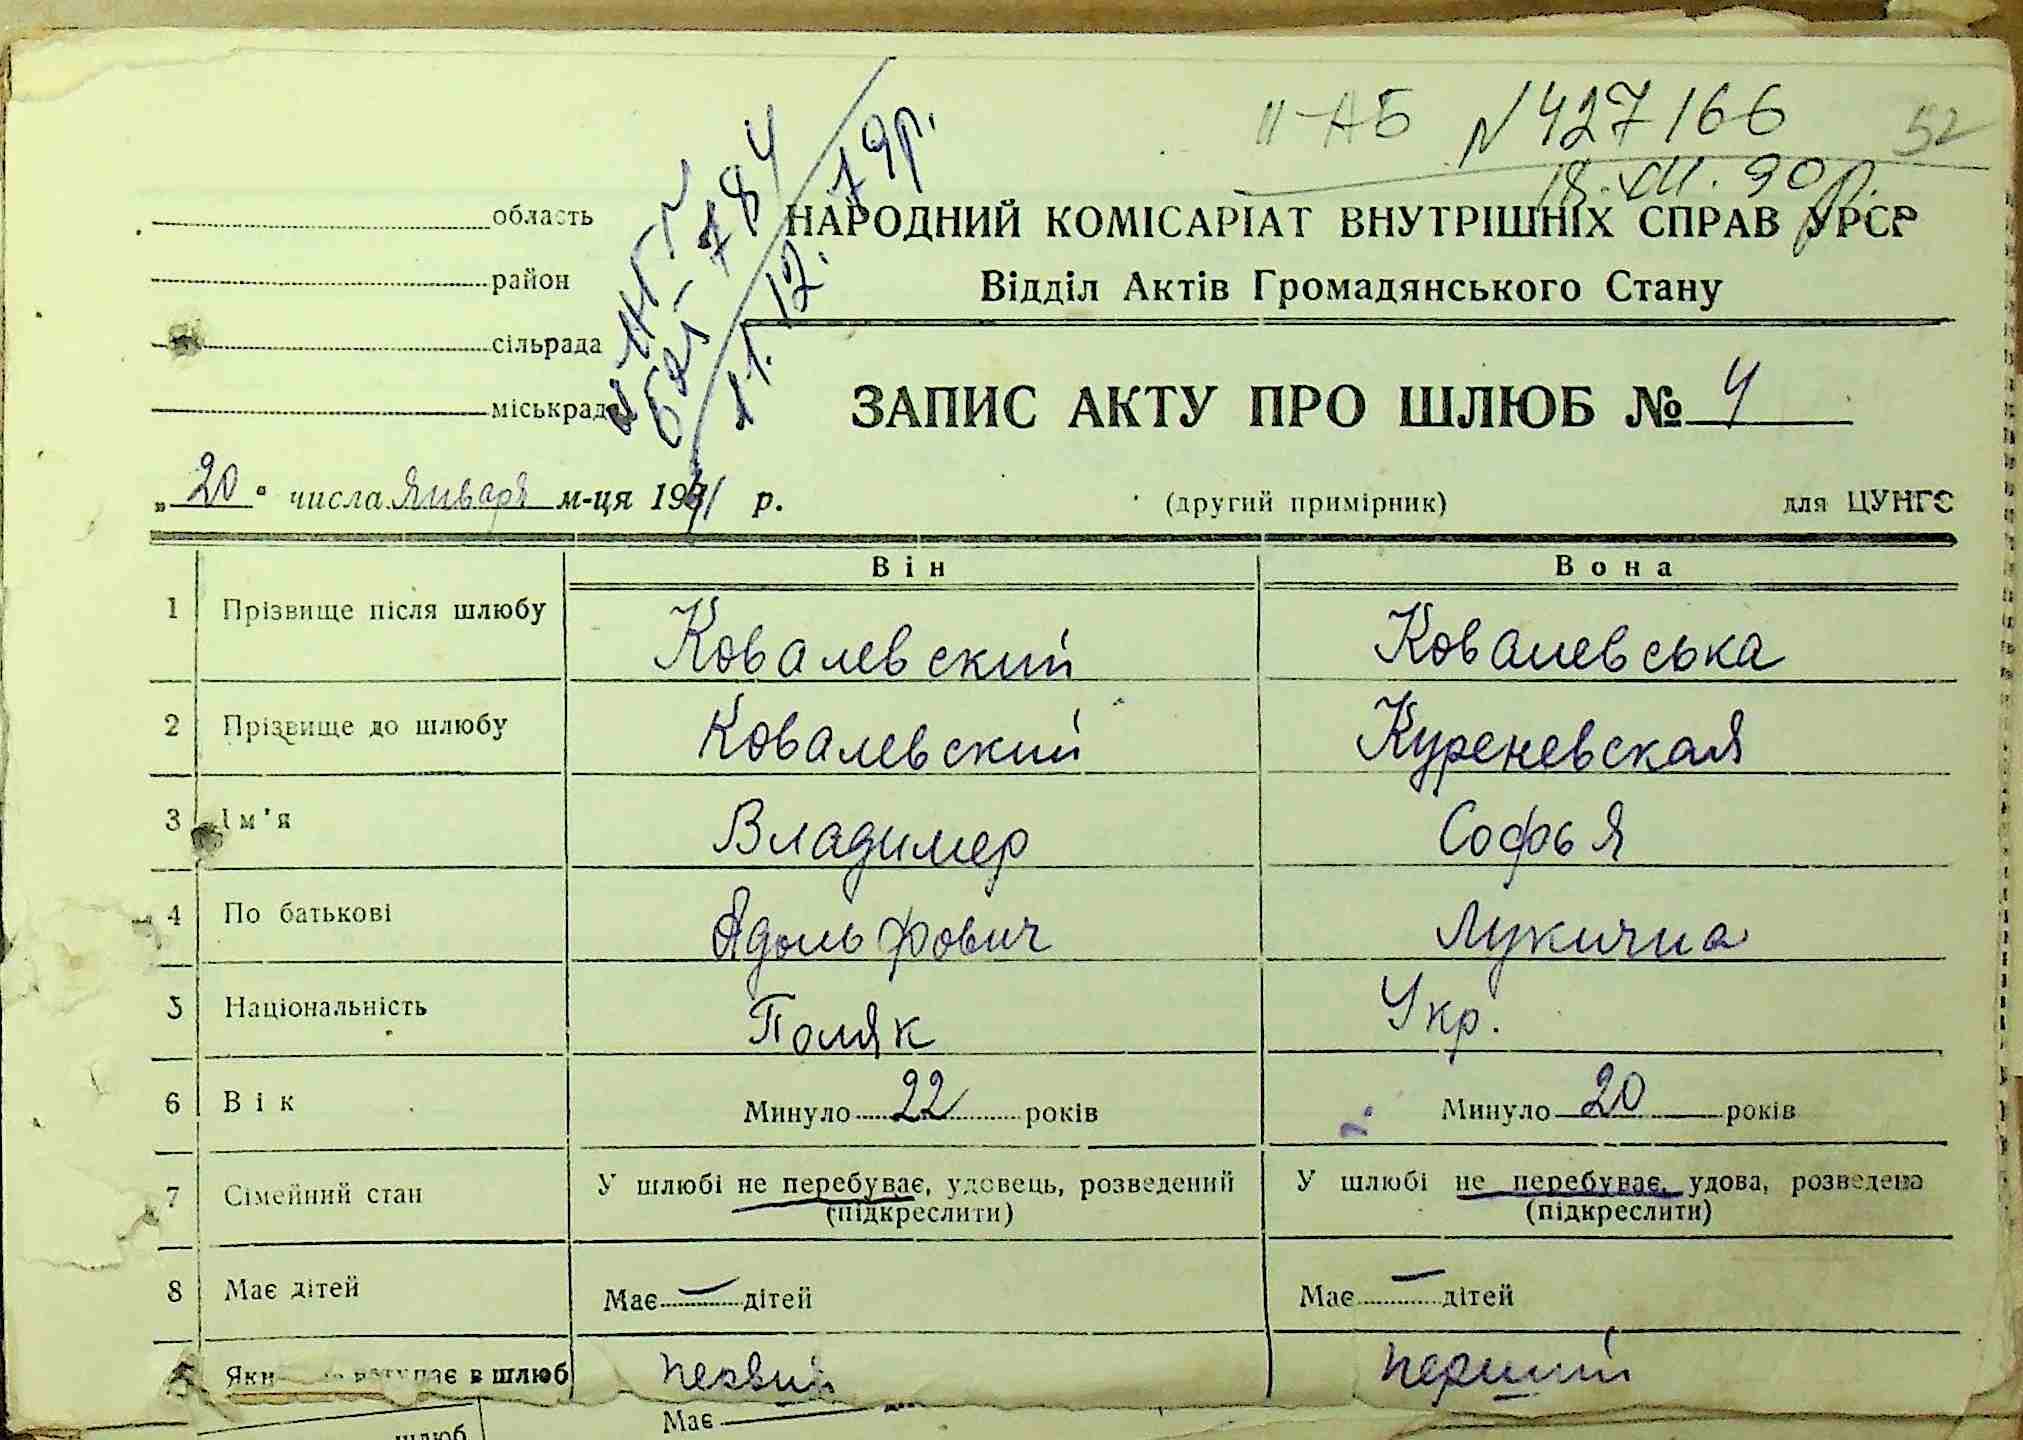 II-АБ № 427166
52
18. XII. 90 р.
область
НАРОДНИЙ КОМІСАРІАТ ВНУТРІШНІХ СПРАВ УРСР
район
Відділ Актів Громадянського Стану
сільрада
11. 12. 79р.
міськрада
ЗАПИС АКТУ ПРО ШЛЮБ № 4
„20" числа января м-ця 1941 р.
(другий примірник)
для ЦУНГО
Він
Вона
1 Прізвище після шлюбу Ковалевский Ковалевська
2 Прізвище до шлюбу Ковалевский Куреневская
3 Ім'я Владимер Софья
4 По батькові Адольфович Лукична
5 Національність Поляк Укр.
6 Вік Минуло 22 років Минуло 20 років
7 Сімейний стан У шлюбі не перебуває, удовець, розведений У шлюбі не перебуває, удова, розведена
(підкреслити) (підкреслити)
8 Має дітей Має — дітей Має — дітей
в шлюб первий перший
шлюб Має